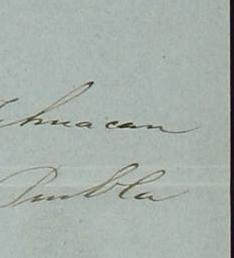 Tehuacan
Puebla